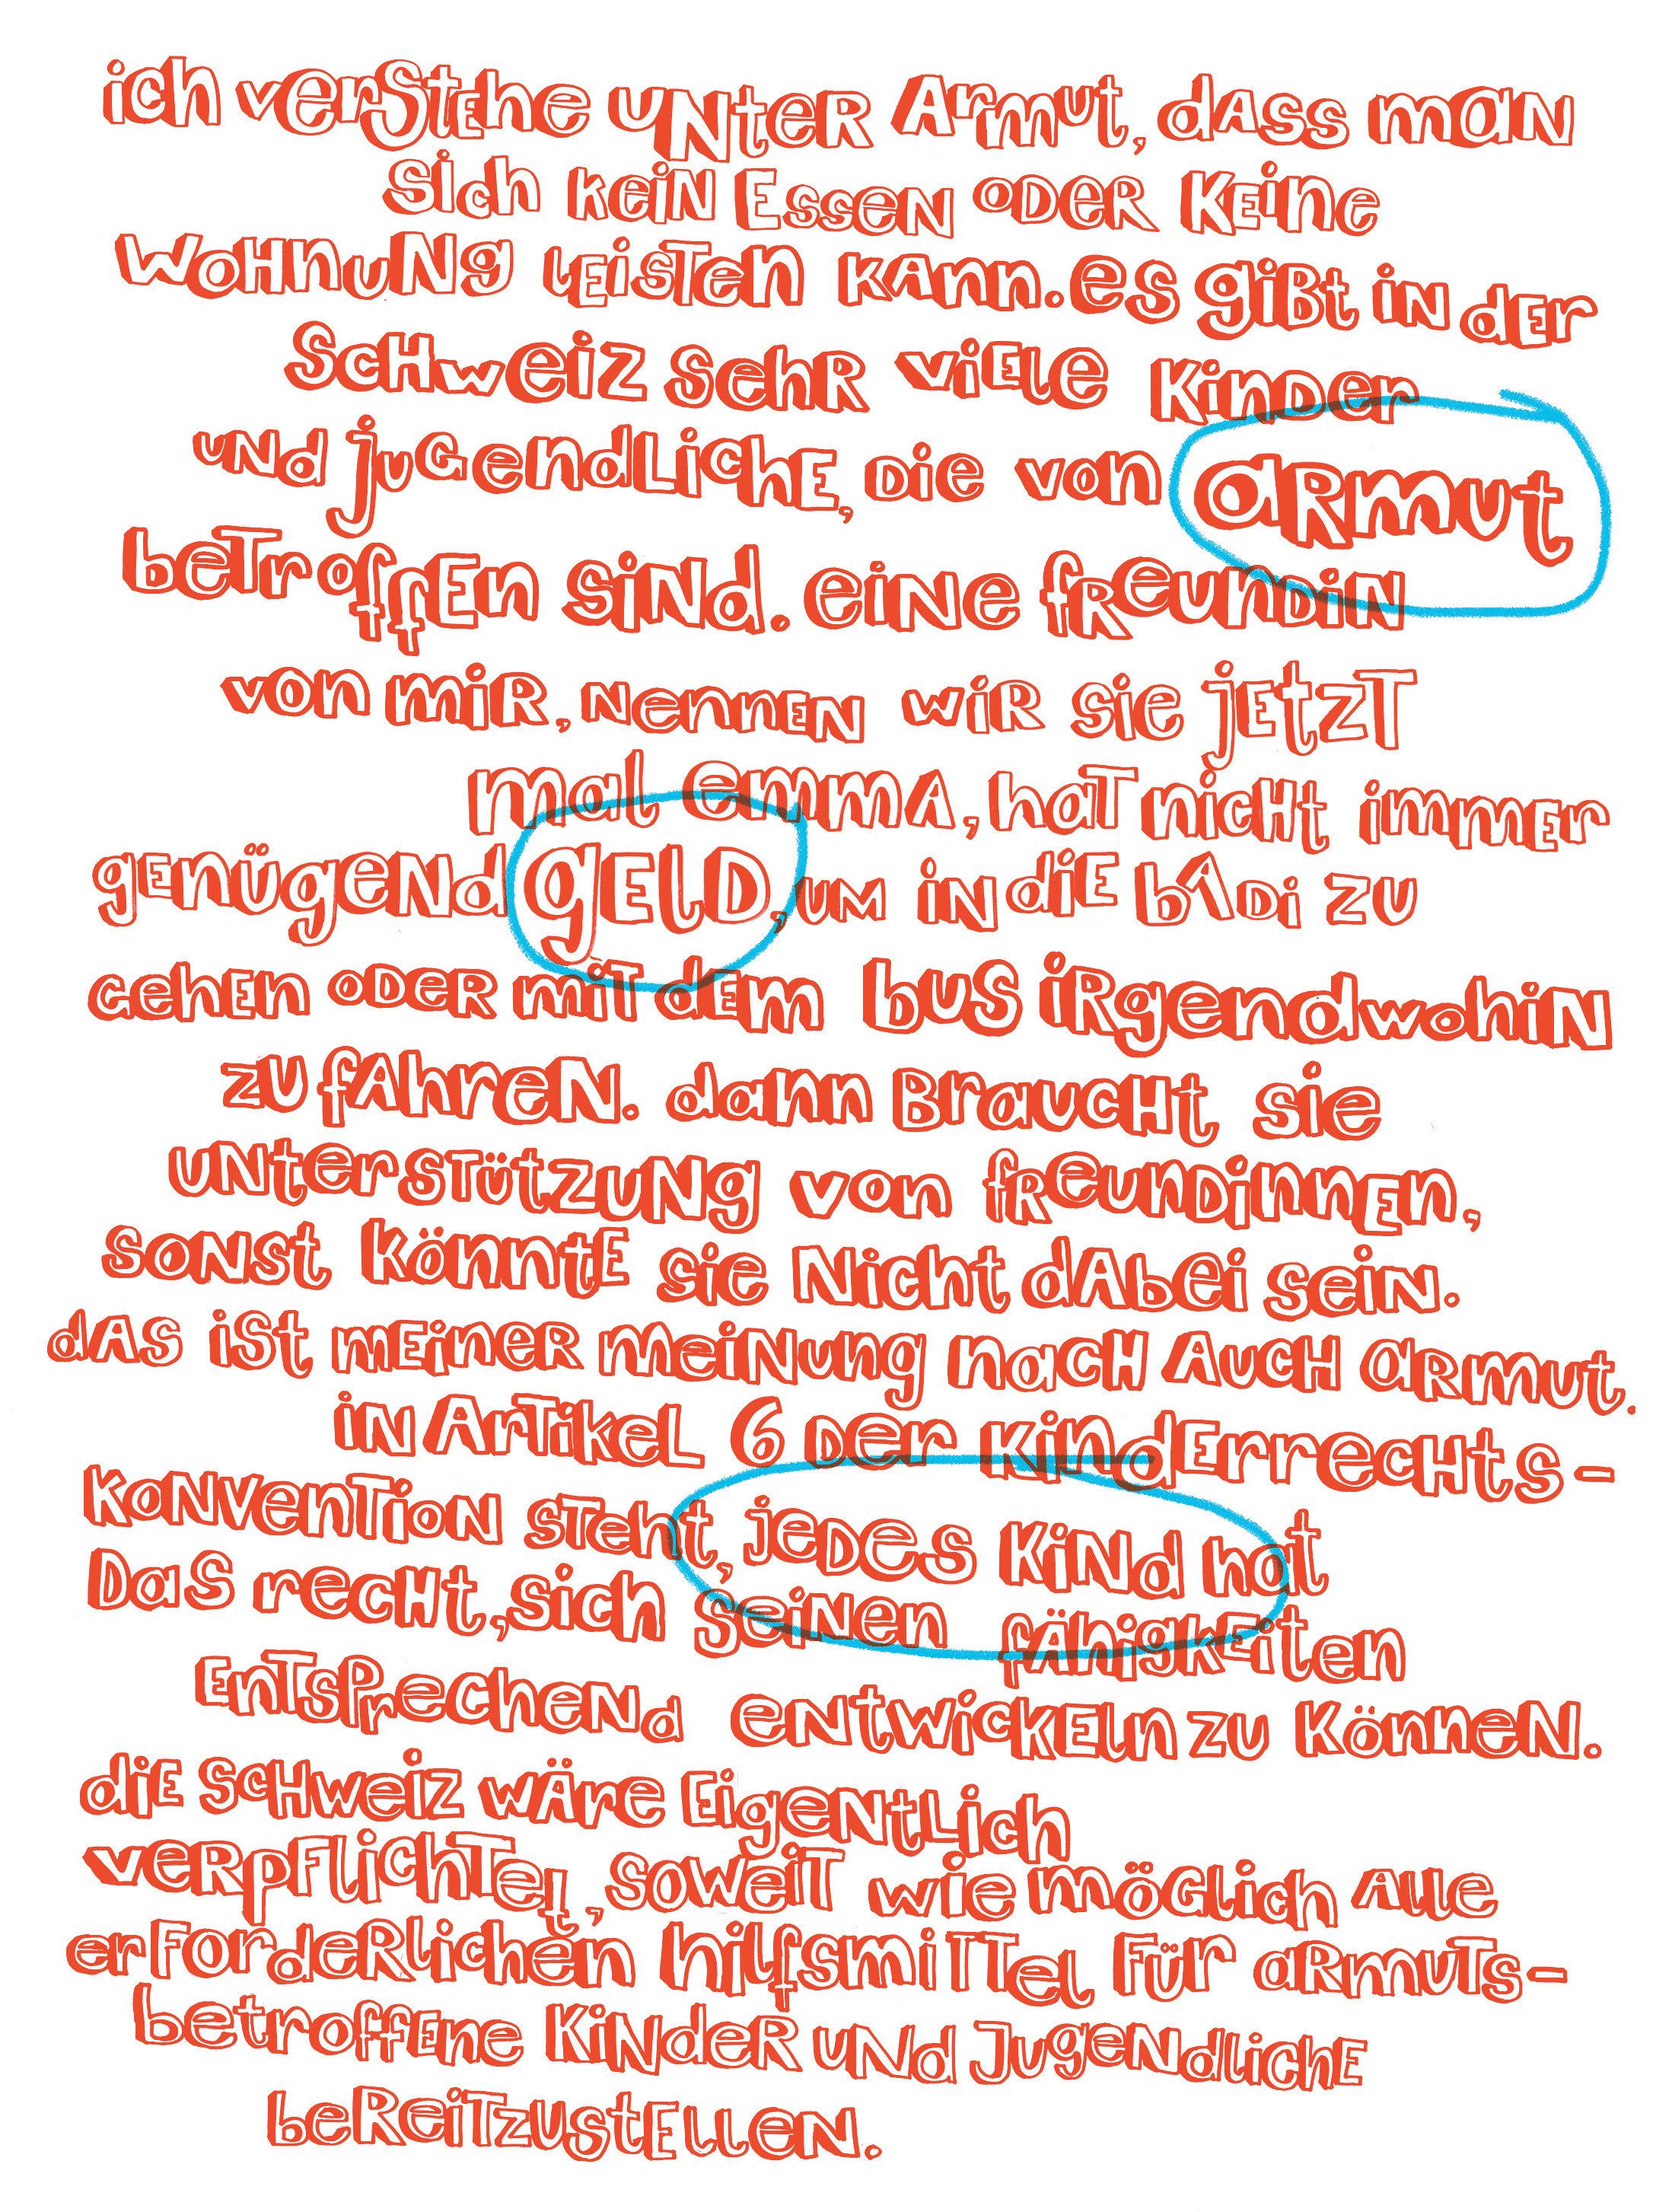 ich verstehe unter Armut, dass man
sich kein Essen oder keine
Wohnung leisten kann. es gibt in der
Schweiz sehr viele Kinder
und jugendliche, die von armut
betroffen sind. eine freundin
von mir, nennen wir sie jetzt
mal emma, hat nicht immer
genügend geld, um in die badi zu
gehen oder mit dem bus irgendwohin
zu fahren. dann braucht sie
unterstützung von freundinnen,
sonst könnte sie nicht dabei sein.
das ist meiner meinung nach auch armut.
in Artikel 6 der kinderrechts-
konvention steht, jedes kind hat
Das recht, sich seinen fähigkeiten
entsprechend entwickeln zu können.
die schweiz wäre eigentlich
verpflichtet, soweit wie möglich alle
erforderlichen hilfsmittel für armuts-
betroffene kinder und jugendliche
bereitzustellen.